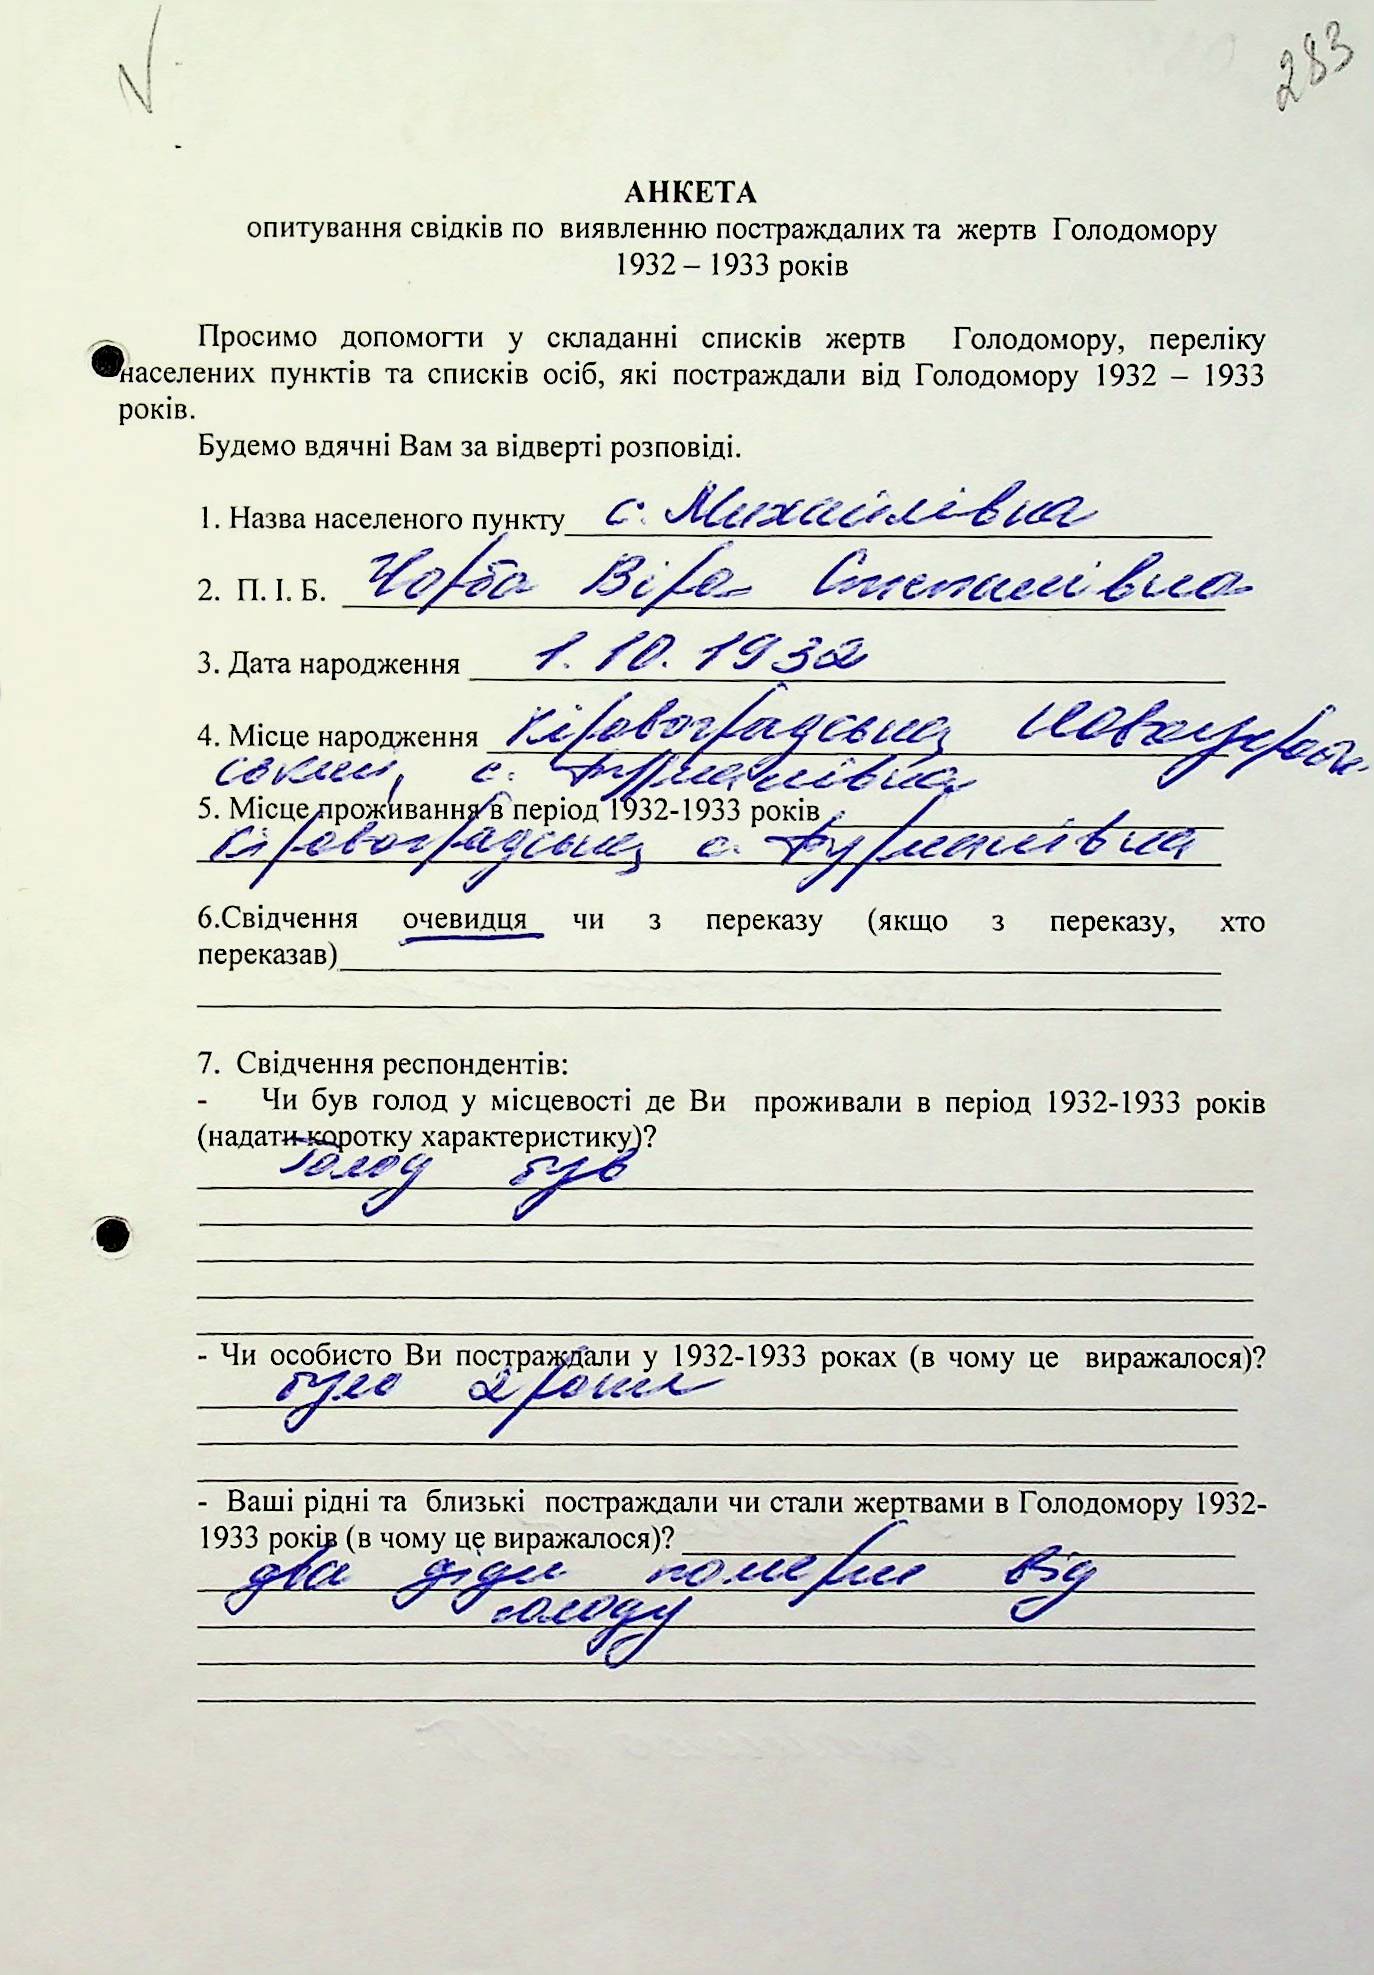 283
АНКЕТА
опитування свідків по виявленню постраждалих та жертв Голодомору
1932 – 1933 років
Просимо допомогти у складанні списків жертв Голодомору, переліку
населених пунктів та списків осіб, які постраждали від Голодомору 1932 – 1933
років.
Будемо вдячні Вам за відверті розповіді.
1. Назва населеного пункту с. Михайлівка
2. П. І. Б. Чорба Віра Степанівна
3. Дата народження 1.10.1932
4. Місце народження Кіровоградська Новоукраїн
ський, с. Фурманівка
5. Місце проживання в період 1932-1933 років
Кіровоградська с. Фурманівка
6.Свідчення очевидця чи з переказу (якщо з переказу, хто
переказав)
7. Свідчення респондентів:
- Чи був голод у місцевості де Ви проживали в період 1932-1933 років
(надати коротку характеристику)?
Голод був
- Чи особисто Ви постраждали у 1932-1933 роках (в чому це виражалося)?
було 2 роки
- Ваші рідні та близькі постраждали чи стали жертвами в Голодомору 1932-
1933 років (в чому це виражалося)?
два діди померли від
голоду